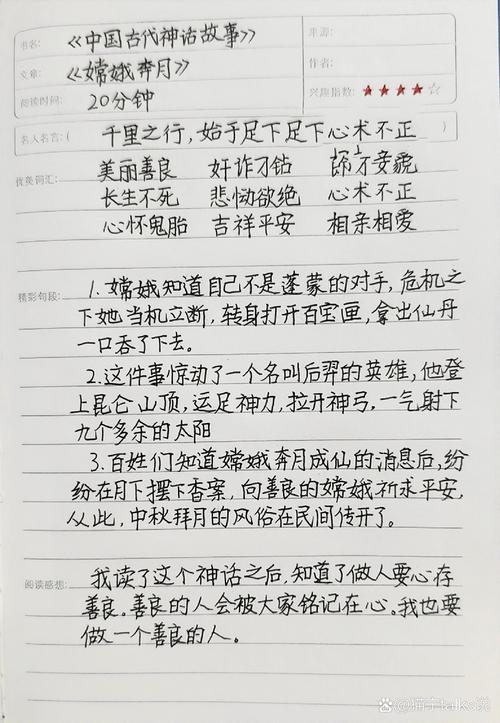 书名:《中国古代神话故事》 来源:
文章:《嫦娥奔月》 作者:
阅读时间: 20分钟 兴趣指数: ★★★★☆
名人名言:( 千里之行,始于足下足下心术不正
优美词汇: 美丽善良 奸诈刁钻
长生不死 悲恸欲绝 心术不正
心怀鬼胎 吉祥平安 相亲相爱
精彩句段: 1.嫦娥知道自己不是蓬蒙的对手,危机之
下她当机立断,转身打开百宝匣,拿出仙丹
一口吞了下去。
2.这件事惊动了一个名叫后羿的英雄,他登
上昆仑山顶,运足神力,拉开神弓,一气射下
九个多余的太阳
3.百姓们知道嫦娥奔月成仙的消息后,纷
纷在月下摆下香案,向善良的嫦娥祈求平安,
从此,中秋拜月的风俗在民间传开了。
阅读感想: 我读了这个神话之后,知道了做人要心存
善良。善良的人会被大家铭记在心。我也要
做一个善良的人。